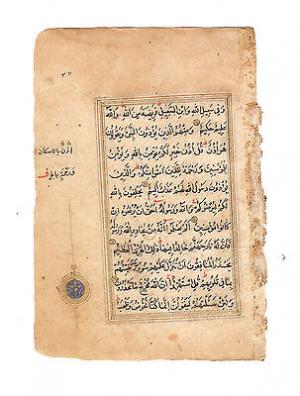 وَفِي سَبِيلِ اللهِ وَابْنِ السَّبِيلِ فَرِيضَةً مِنَ اللهِ وَاللهُ
عَلِيمٌ حَكِيمٌ وَمِنْهُمُ الَّذِينَ يُؤْذُونَ النَّبِيَّ وَيَقُولُونَ
هُوَ أُذُنٌ قُلْ أُذُنُ خَيْرٍ لَكُمْ يُؤْمِنُ بِاللهِ وَيُؤْمِنُ
لِلْمُؤْمِنِينَ وَرَحْمَةٌ لِلَّذِينَ آمَنُوا مِنْكُمْ وَالَّذِينَ
يُؤْذُونَ رَسُولَ اللهِ لَهُمْ عَذَابٌ أَلِيمٌ يَحْلِفُونَ بِاللهِ
لَكُمْ لِيُرْضُوكُمْ وَاللهُ وَرَسُولُهُ أَحَقُّ أَنْ يُرْضُوهُ إِنْ
كَانُوا مُؤْمِنِينَ أَلَمْ يَعْلَمُوا أَنَّهُ مَنْ يُحَادِدِ اللهَ وَرَسُولَهُ
فَأَنَّ لَهُ نَارَ جَهَنَّمَ خَالِدًا فِيهَا ذَلِكَ الْخِزْيُ الْعَظِيمُ
يَحْذَرُ الْمُنَافِقُونَ أَنْ تُنَزَّلَ عَلَيْهِمْ سُورَةٌ تُنَبِّئُهُمْ
بِمَا فِي قُلُوبِهِمْ قُلِ اسْتَهْزِؤُا إِنَّ اللهَ مُخْرِجٌ مَا تَحْذَرُونَ
وَلَئِنْ سَأَلْتَهُمْ لَيَقُولُنَّ إِنَّمَا كُنَّا نَخُوضُ وَنَلْعَبُ
أُذُنٌ بالاسكان